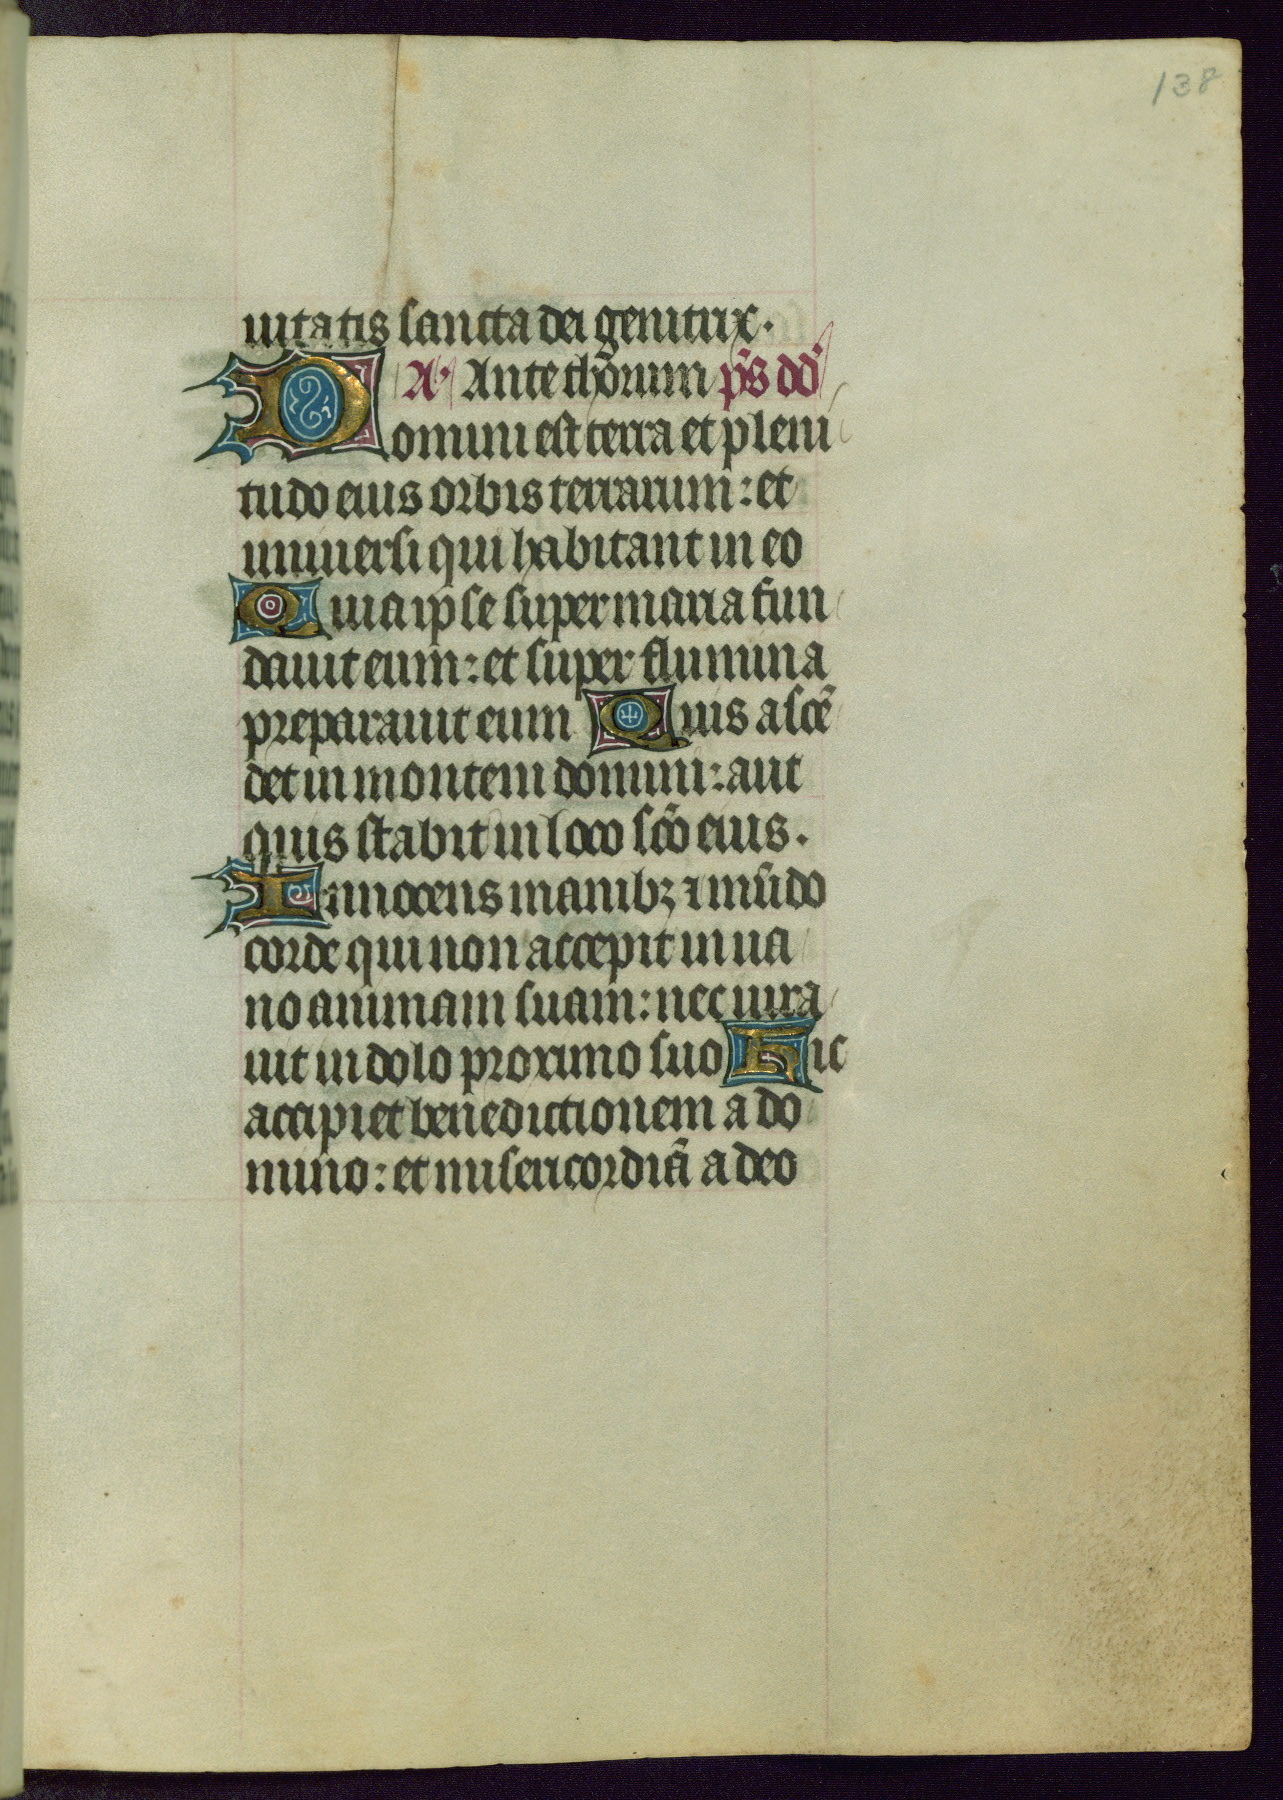 138
uitatis sancta dei genitrix.
A. Ante thorum p̄s dd̄
Domini est terra et pleni
tudo eius orbis terrarum: et
uniuersi qui habitant in eo
Quia ipse super maria fun
dauit eum: et super flumina
preparauit eum Quis ascē
det in montem domini: aut
quis stabit in loco scō eius.
Innocens manibꝫ ⁊ mūdo
corde qui non accepit in ua
no animam suam: nec iura
uit in dolo proximo suo Hic
accipiet benedictionem a do
mino: et misericordiā a deo